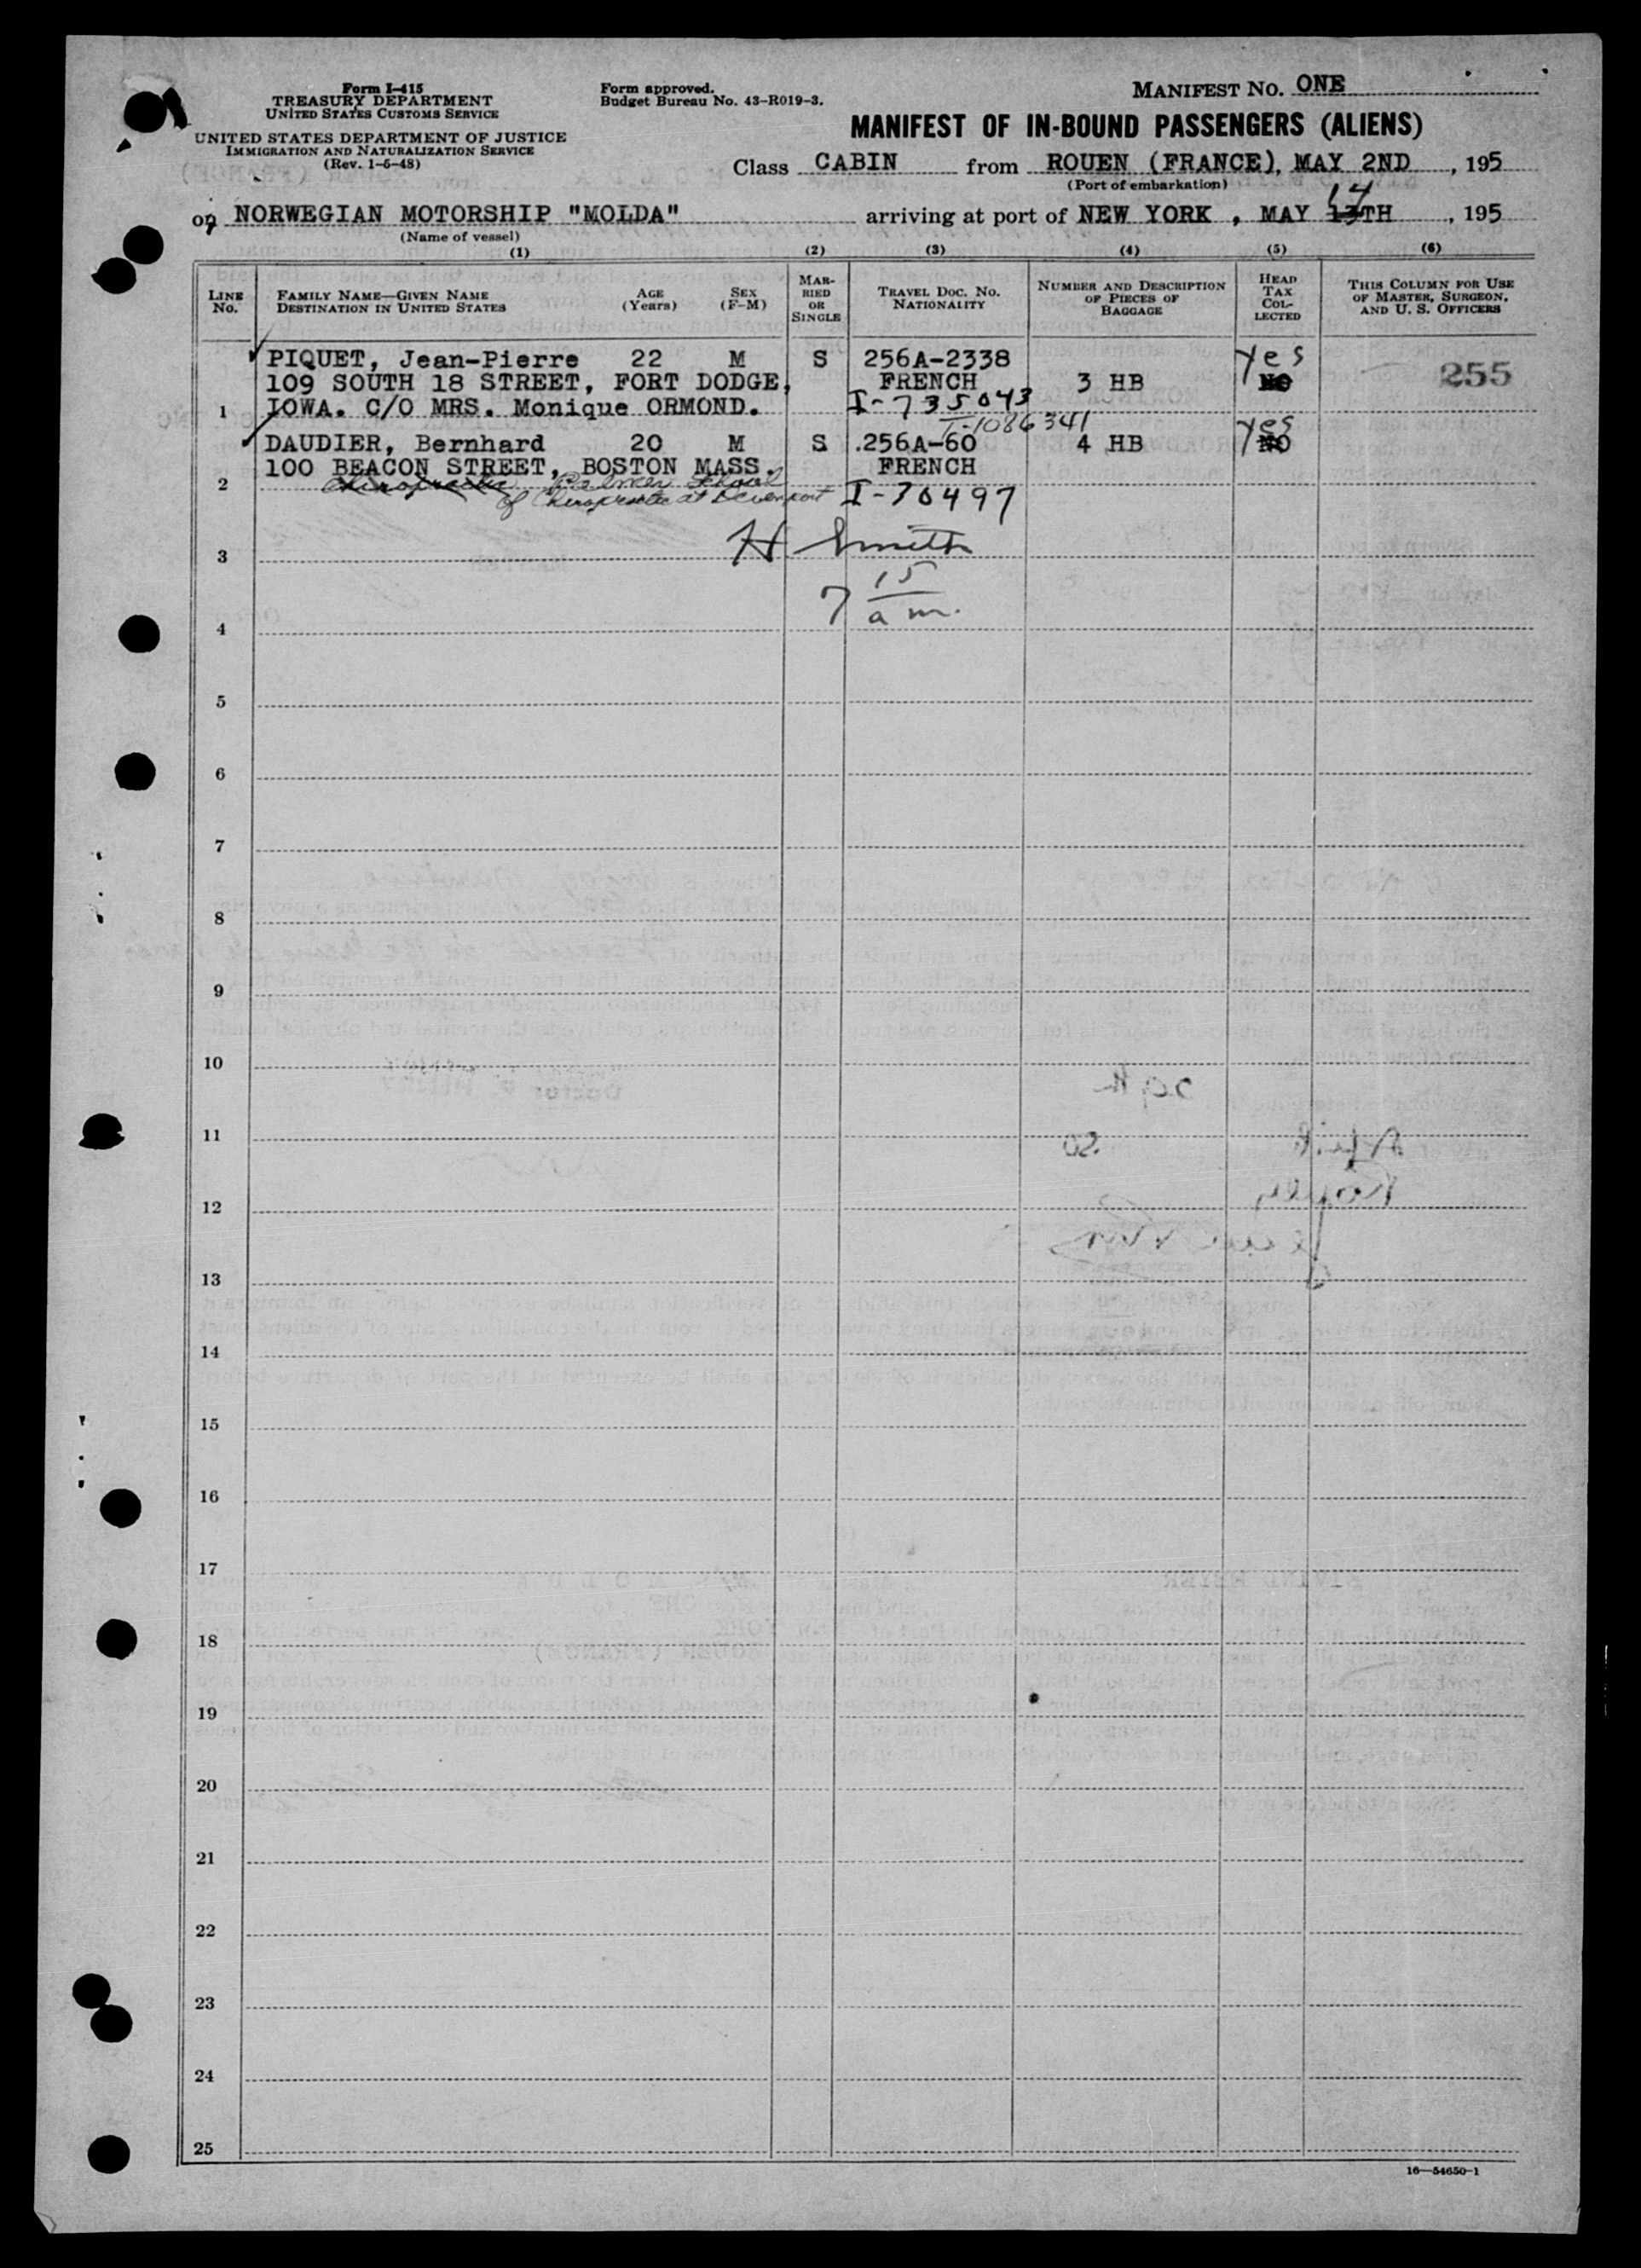 Form I-415
TREASURY DEPARTMENT
UNITED STATES CUSTOMS SERVICE
UNITED STATES DEPARTMENT OF JUSTICE
IMMIGRATION AND NATURALIZATION SERVICE
(Rev. 1-6-48)
Form approved.
Budget Bureau No. 43-R019-3.
MANIFEST NO. ONE
MANIFEST OF IN-BOUND PASSENGERS (ALIENS)
Class CABIN from ROUEN (FRANCE), MAY 2ND, 195
(Port of embarkation)
on NORWEGIAN MOTORSHIP "MOLDA" arriving at port of NEW YORK, MAY 13TH 14, 195
(Name of vessel)
(1) (2) (3) (4) (5) (6)
LINE No. FAMILY NAME—GIVEN NAME DESTINATION IN UNITED STATES AGE (Years) SEX (F-M) MARRIED OR SINGLE TRAVEL DOC. NO. NATIONALITY NUMBER AND DESCRIPTION OF PIECES OF BAGGAGE HEAD TAX COLLECTED THIS COLUMN FOR USE OF MASTER, SURGEON, AND U. S. OFFICERS
PIQUET, Jean-Pierre 22 M S 256A-2338 Yes
109 SOUTH 18 STREET, FORT DODGE, FRENCH 3 HB NO 255
1 IOWA. C/O MRS. Monique ORMOND. I-735043
I-1086341 yes
DAUDIER, Bernhard 20 M S .256A-60 4 HB NO
100 BEACON STREET, BOSTON MASS. FRENCH
2 Chiropractic Palmer School
of Chiropractic at Davenport I-70497
3 H Smith
4 7 15 a m.
5
6
7
8
9
10
11
12
13
14
15
16
17
18
19
20
21
22
23
24
25
16—54650-1